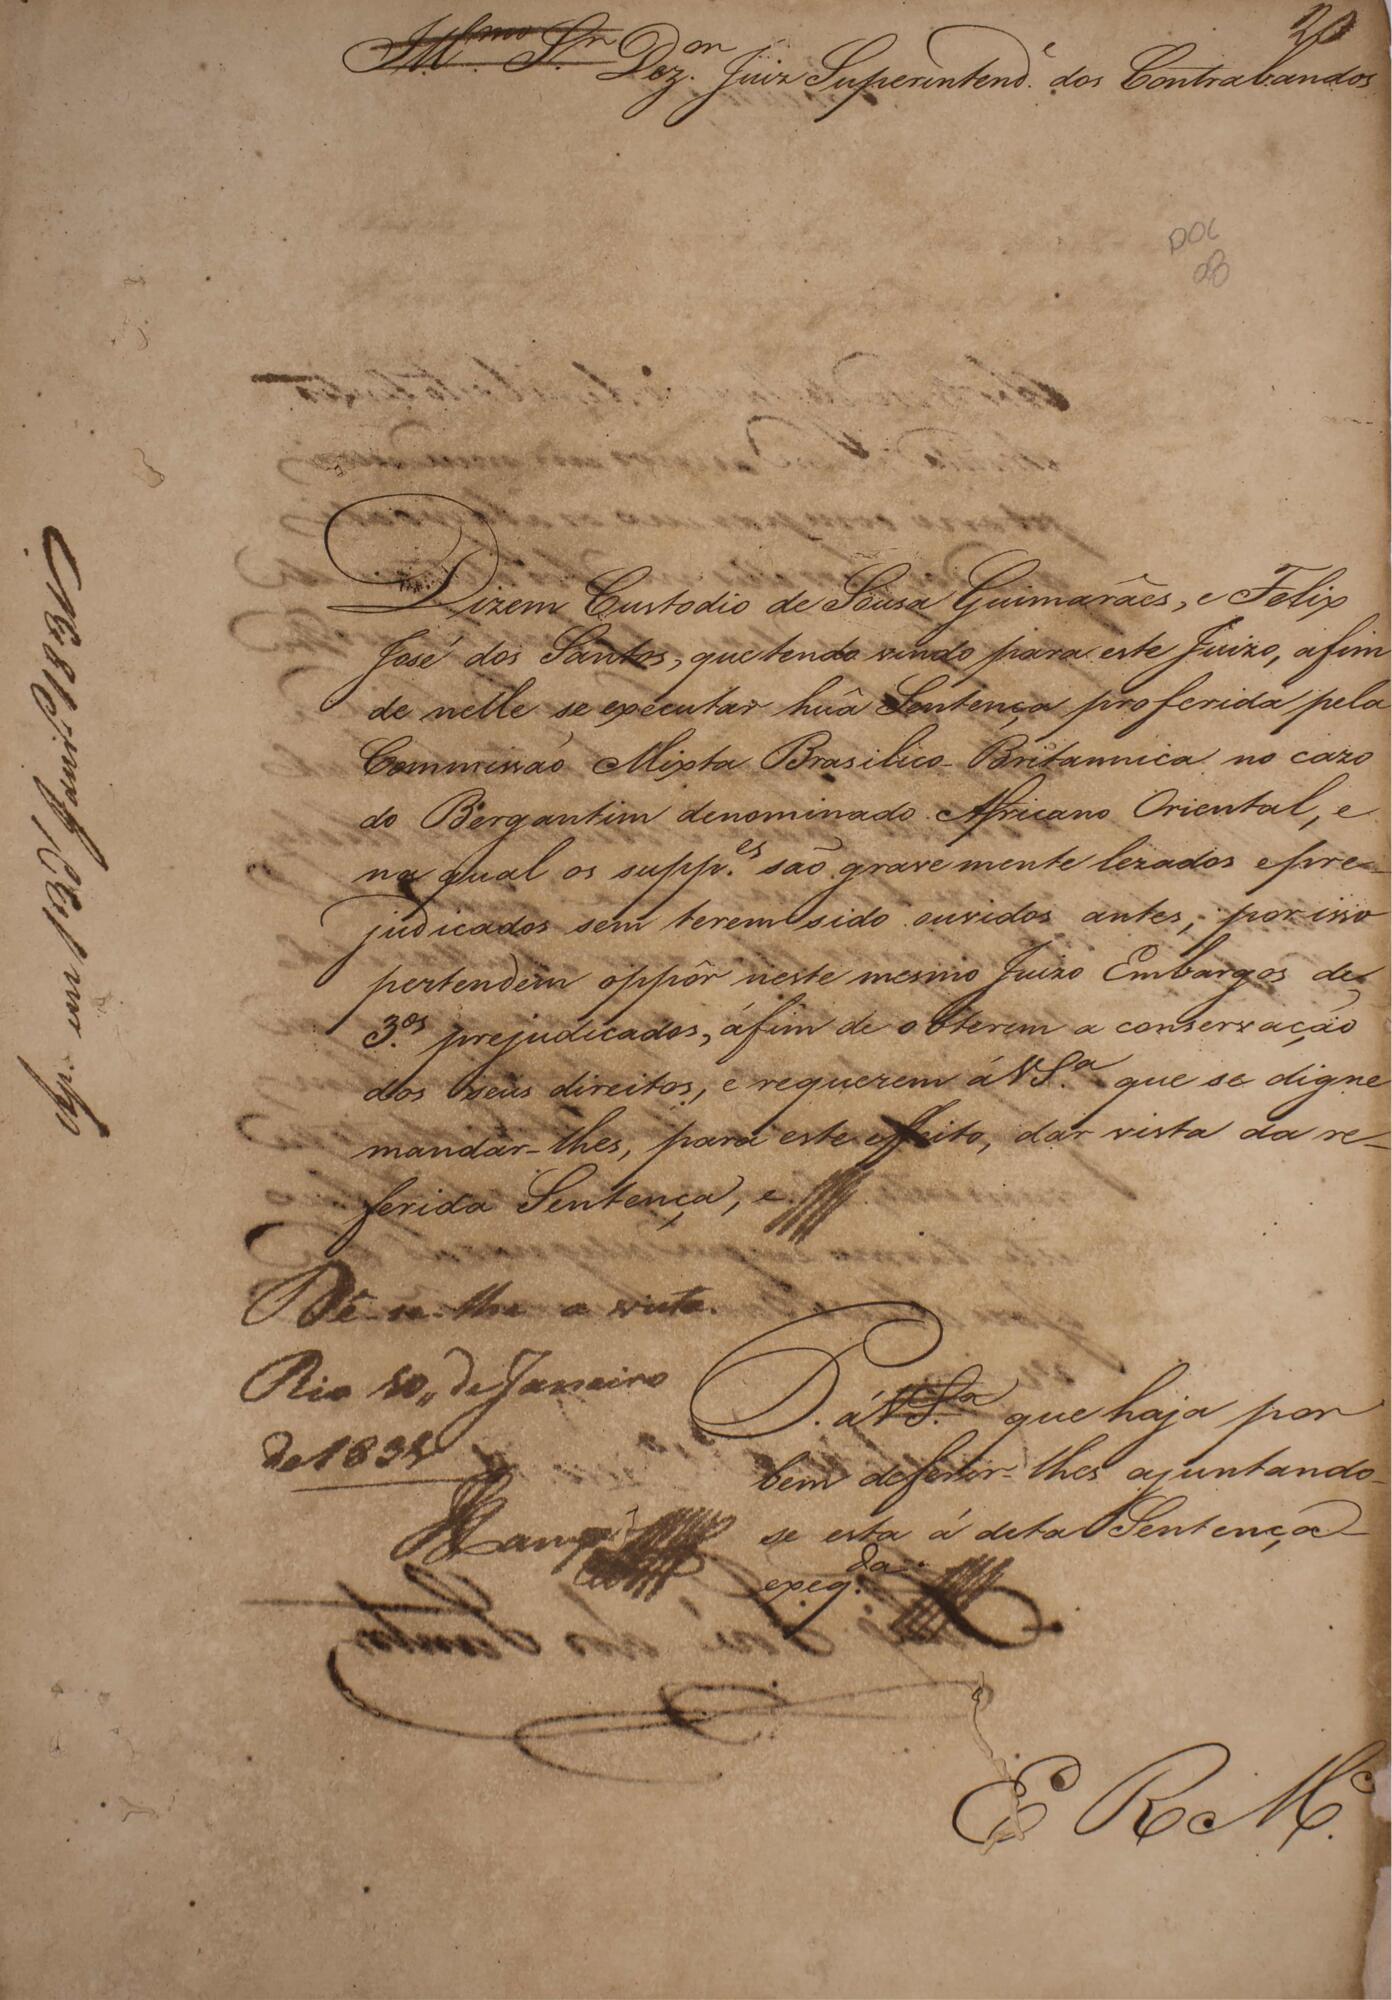 20
Ill.mo Snr. Dez.or Juiz Superintend.e dos Contrabandos
DOC
Dizem Custodio de Sousa Guimarães, e Felix
José dos Santos, que tendo vindo para este Juizo, afim
de nelle se executar huã Sentença proferida pela
Commissão Mixta Brasilico-Britannica no cazo
do Bergantim denominado Africano Oriental, e
na qual os supp.es são grave mente lezados e pre-
judicados sem terem sido ouvidos antes, por isso
pertendem oppôr neste mesmo Juizo Embargos de
3.os prejudicados, áfim de obterem a conservação
dos seus direitos, e requerem á V S.a que se digne
mandar-lhes, para este effeito, dar vista da re-
ferida Sentença, e
Dê-se-lhe a vista.
Rio 20,, de Janeiro
de 183
P. á V S.a que haja por
bem deferir-lhes ajuntando-
se esta á dita Sentença
exeq.da
E R M.